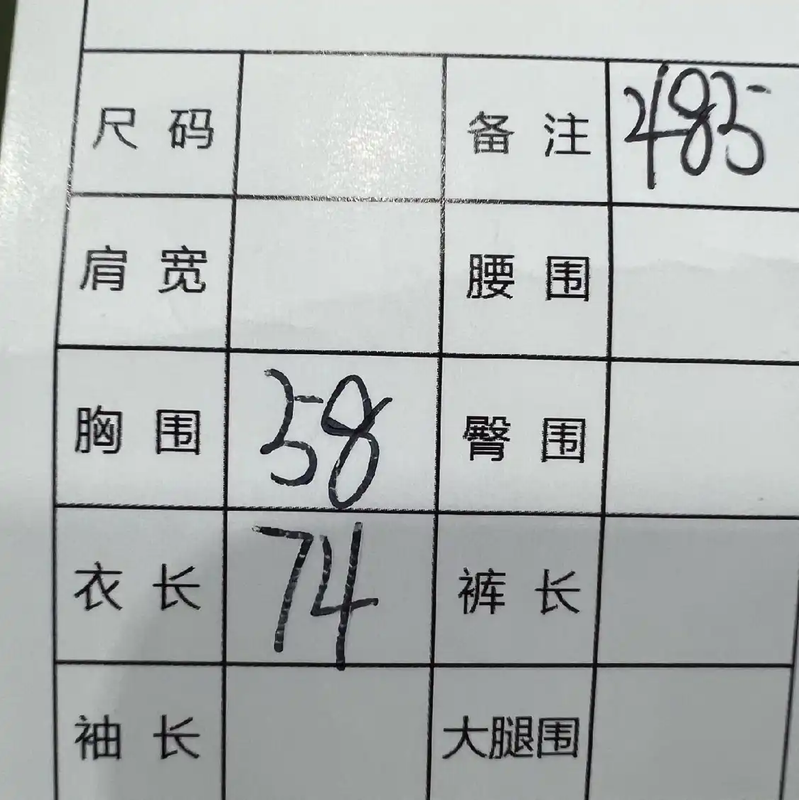 尺码 备注 485
肩宽 腰围
胸围 58 臀围
衣长 74 裤长
袖长 大腿围